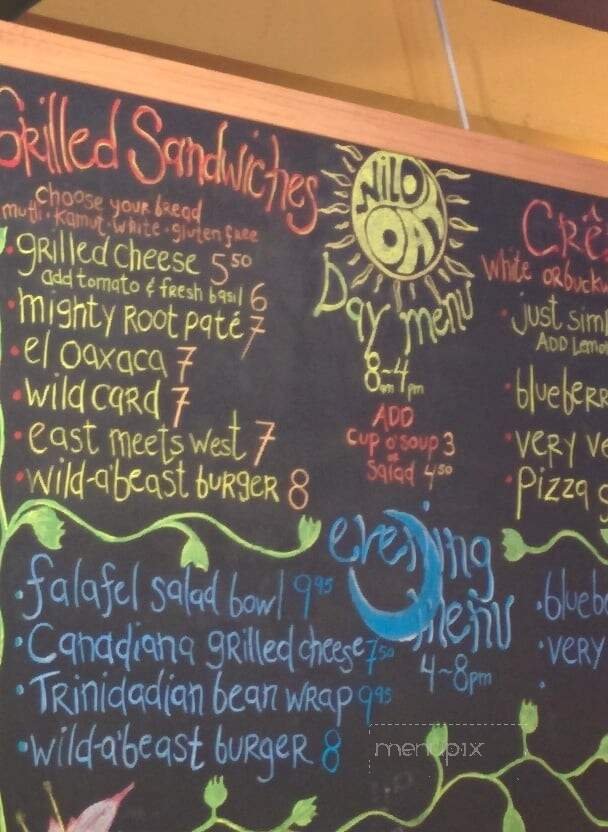 Grilled Sandwiches
choose your bread
multi · Kamut · white · gluten free
· grilled cheese 5 50
add tomato & fresh basil 6
· mighty Root paté 7
· el oaxaca 7
· wild card 7
· east meets west 7
· wild-a'beast burger 8
WILD
OAT
Day menu
8am~4pm
ADD
cup o' soup 3
or
Salad 4 50
Crê
White or buckw
· just simp
ADD Lemo
· blueberr
· very ve
· Pizza g
evening
menu
4~8pm
· falafel salad bowl 9 95
· Canadiana grilled cheese 7 50
· Trinidadian bean wrap 9 95
· wild-a'beast burger 8
· blueb
· very
·
menupix